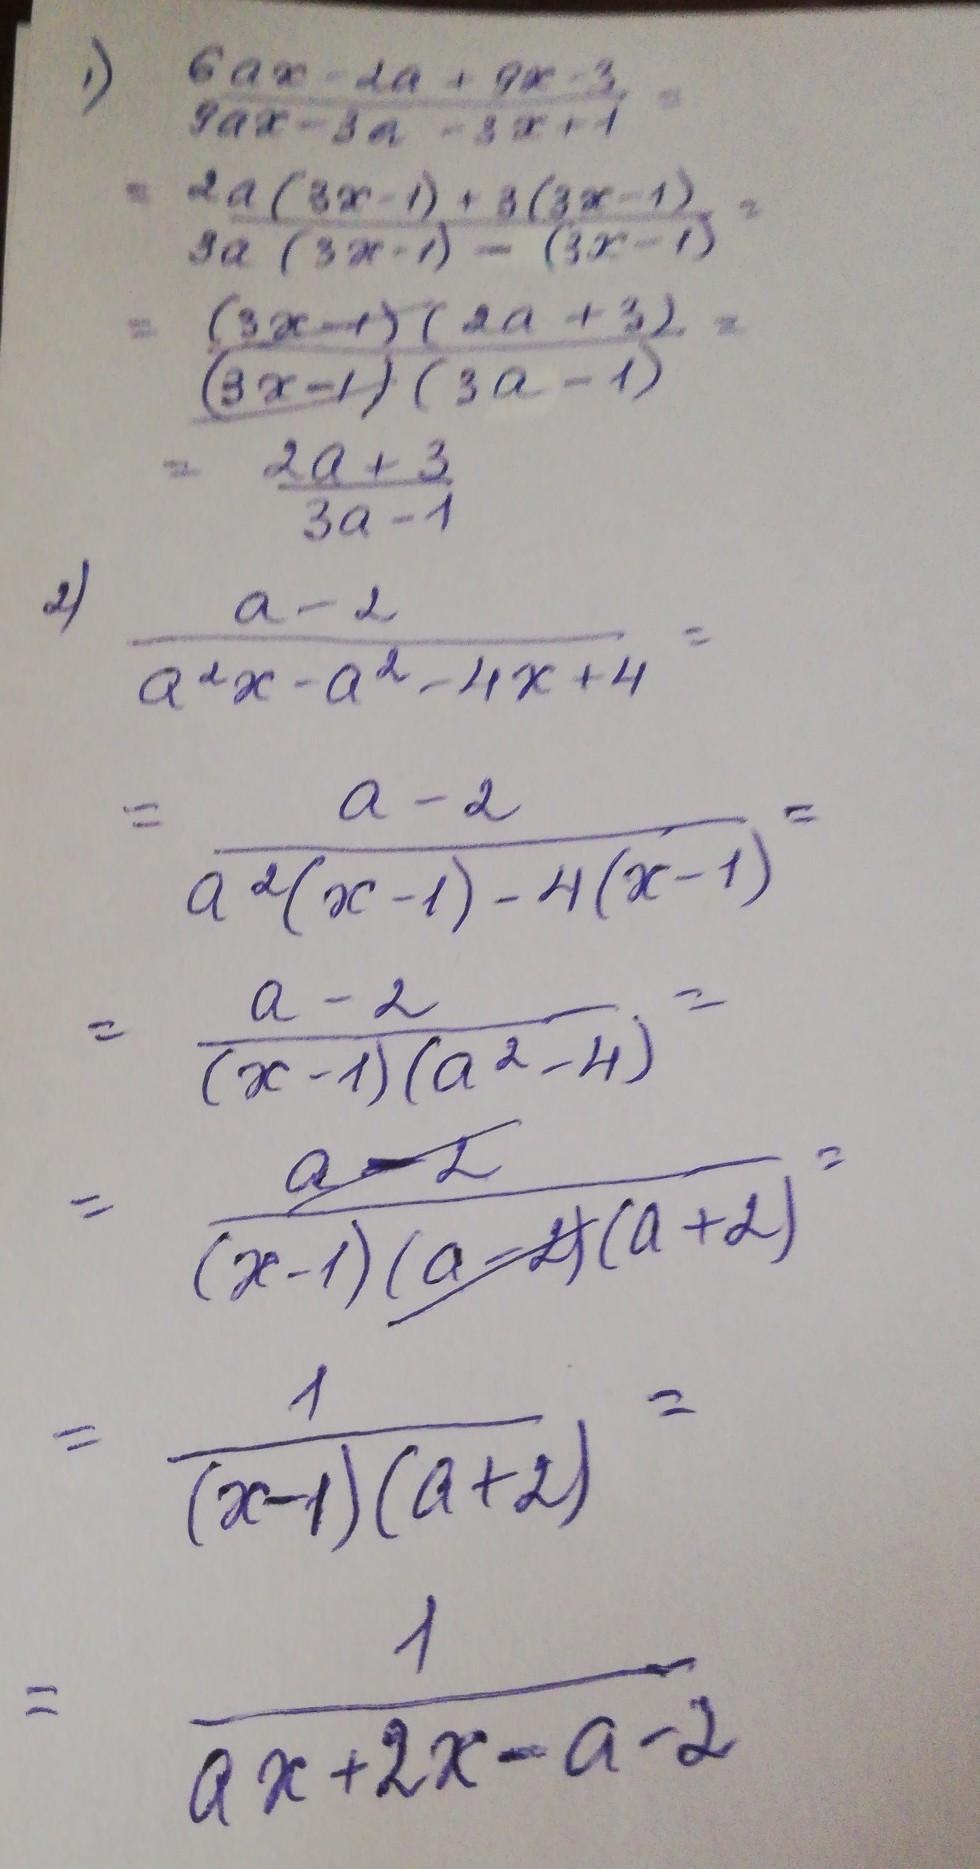 1) (6ax - 2a + 9x - 3)/(9ax - 3a - 3x + 1) =
= (2a(3x-1) + 3(3x-1))/(3a(3x-1) - (3x-1)) =
= ((3x-1)(2a+3))/((3x-1)(3a-1)) =
= (2a+3)/(3a-1)
2) (a-2)/(a²x - a² - 4x + 4) =
= (a-2)/(a²(x-1) - 4(x-1)) =
= (a-2)/((x-1)(a²-4)) =
= (a-2)/((x-1)(a-2)(a+2)) =
= 1/((x-1)(a+2)) =
= 1/(ax+2x-a-2)